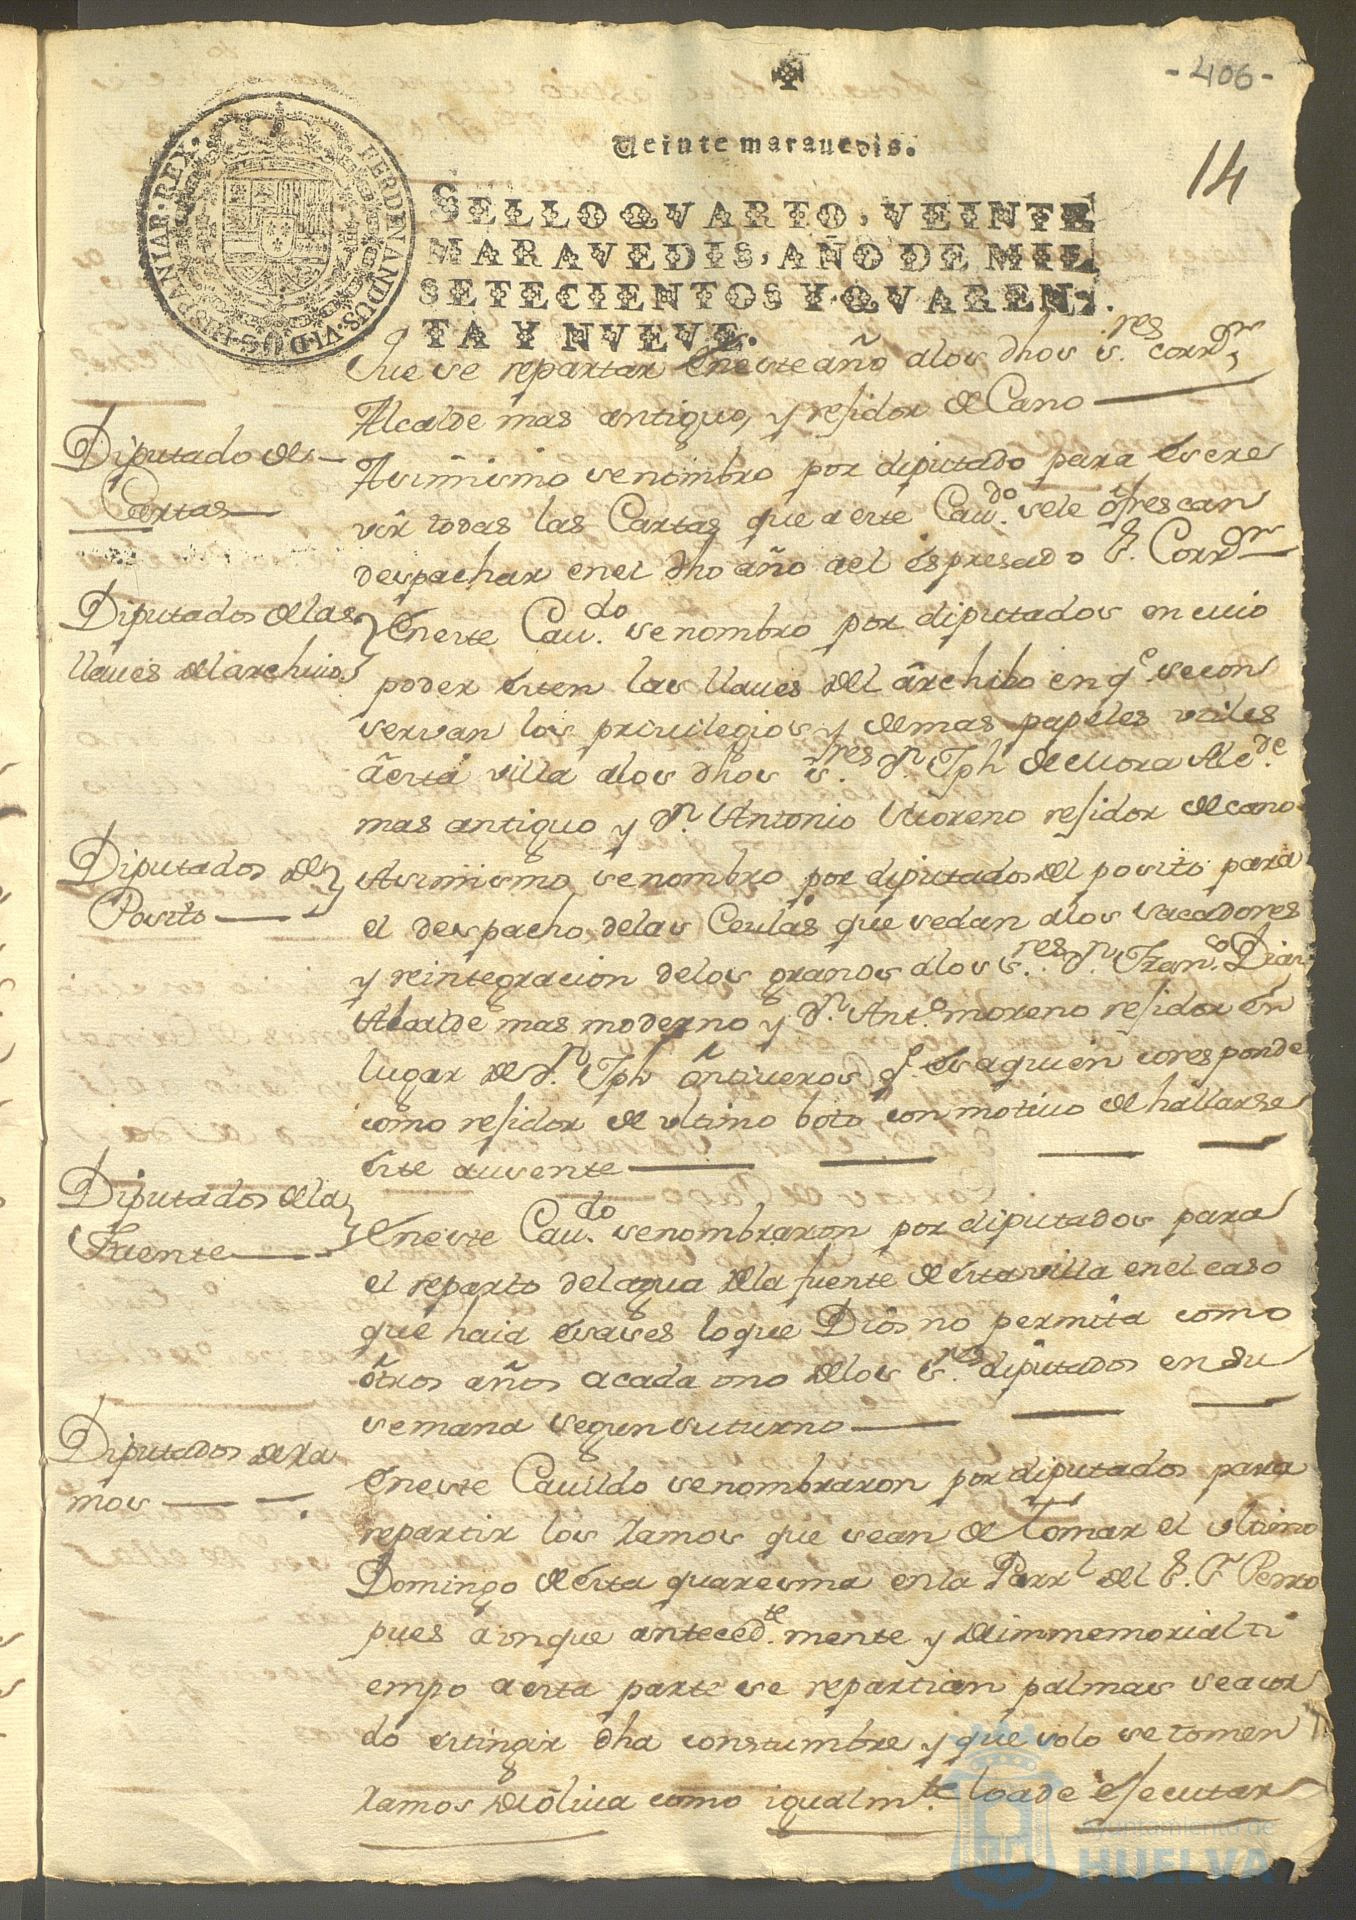 -406-
14
Veinte marauedis.
SELLO QVARTO, VEINTE
MARAVEDIS, AÑO DE MIL
SETECIENTOS Y QVAREN-
TA Y NVEVE.
FERDINANDUS·VI·D·G·HISPANIAR·REX·
Que se repartan en este año a los dhos s.res corr.or
Alcalde mas antiguo, y rejidor de Cano
Diputado de
Cartas
Asimismo se nombro por diputado para escre
vir todas las Cartas que a este Cau.do se le ofrescan
despachar en el dho año ael espresado S.r Corr.or
Diputados de las
llaues del archiuo
En este Cau.do se nombro por diputados en cuio
poder esten las llaues del archibo en q.e se con
servan los priuilegios y demas papeles utiles
a esta villa a los dhos s.res d.n Jph de Mora Alc.de
mas antiguo y d.n Antonio Moreno rejidor de cano
Diputados del
Posito
Asimismo se nombro por diputados del posito para
el despacho de las Ceulas que se dan a los sacadores
y reintegracion de los granos a los s.res d.n Fran.co Dian
Alcalde mas moderno y d.n Ant.o moreno rejidor en
lugar de d.n Jph Ontiueros q.e es a quien coresponde
como rejidor de ultimo boto con motiuo de hallarse
este ausente
Diputados de la
Fuente
En este Cau.do se nombraron por diputados para
el reparto del agua de la fuente de esta villa en el caso
que haia esases lo que Dios no permita como
otros años a cada ono de los s.res diputados en su
semana segun su turno
Diputados de ra
mos
En este Cauildo se nombraron por diputados para
repartir los ramos que sean de tomar el ultimo
Domingo de esta quaresma en la Parr.l del S.r S.n Pedro
pues aonque anteced.te mente y de immemorial ti
empo a esta parte se repartian palmas se acor
do estingir dha constumbre y que solo se tomen
ramos de oliua como igualm.te lo a de ejecutar
Ayuntamiento de
HUELVA